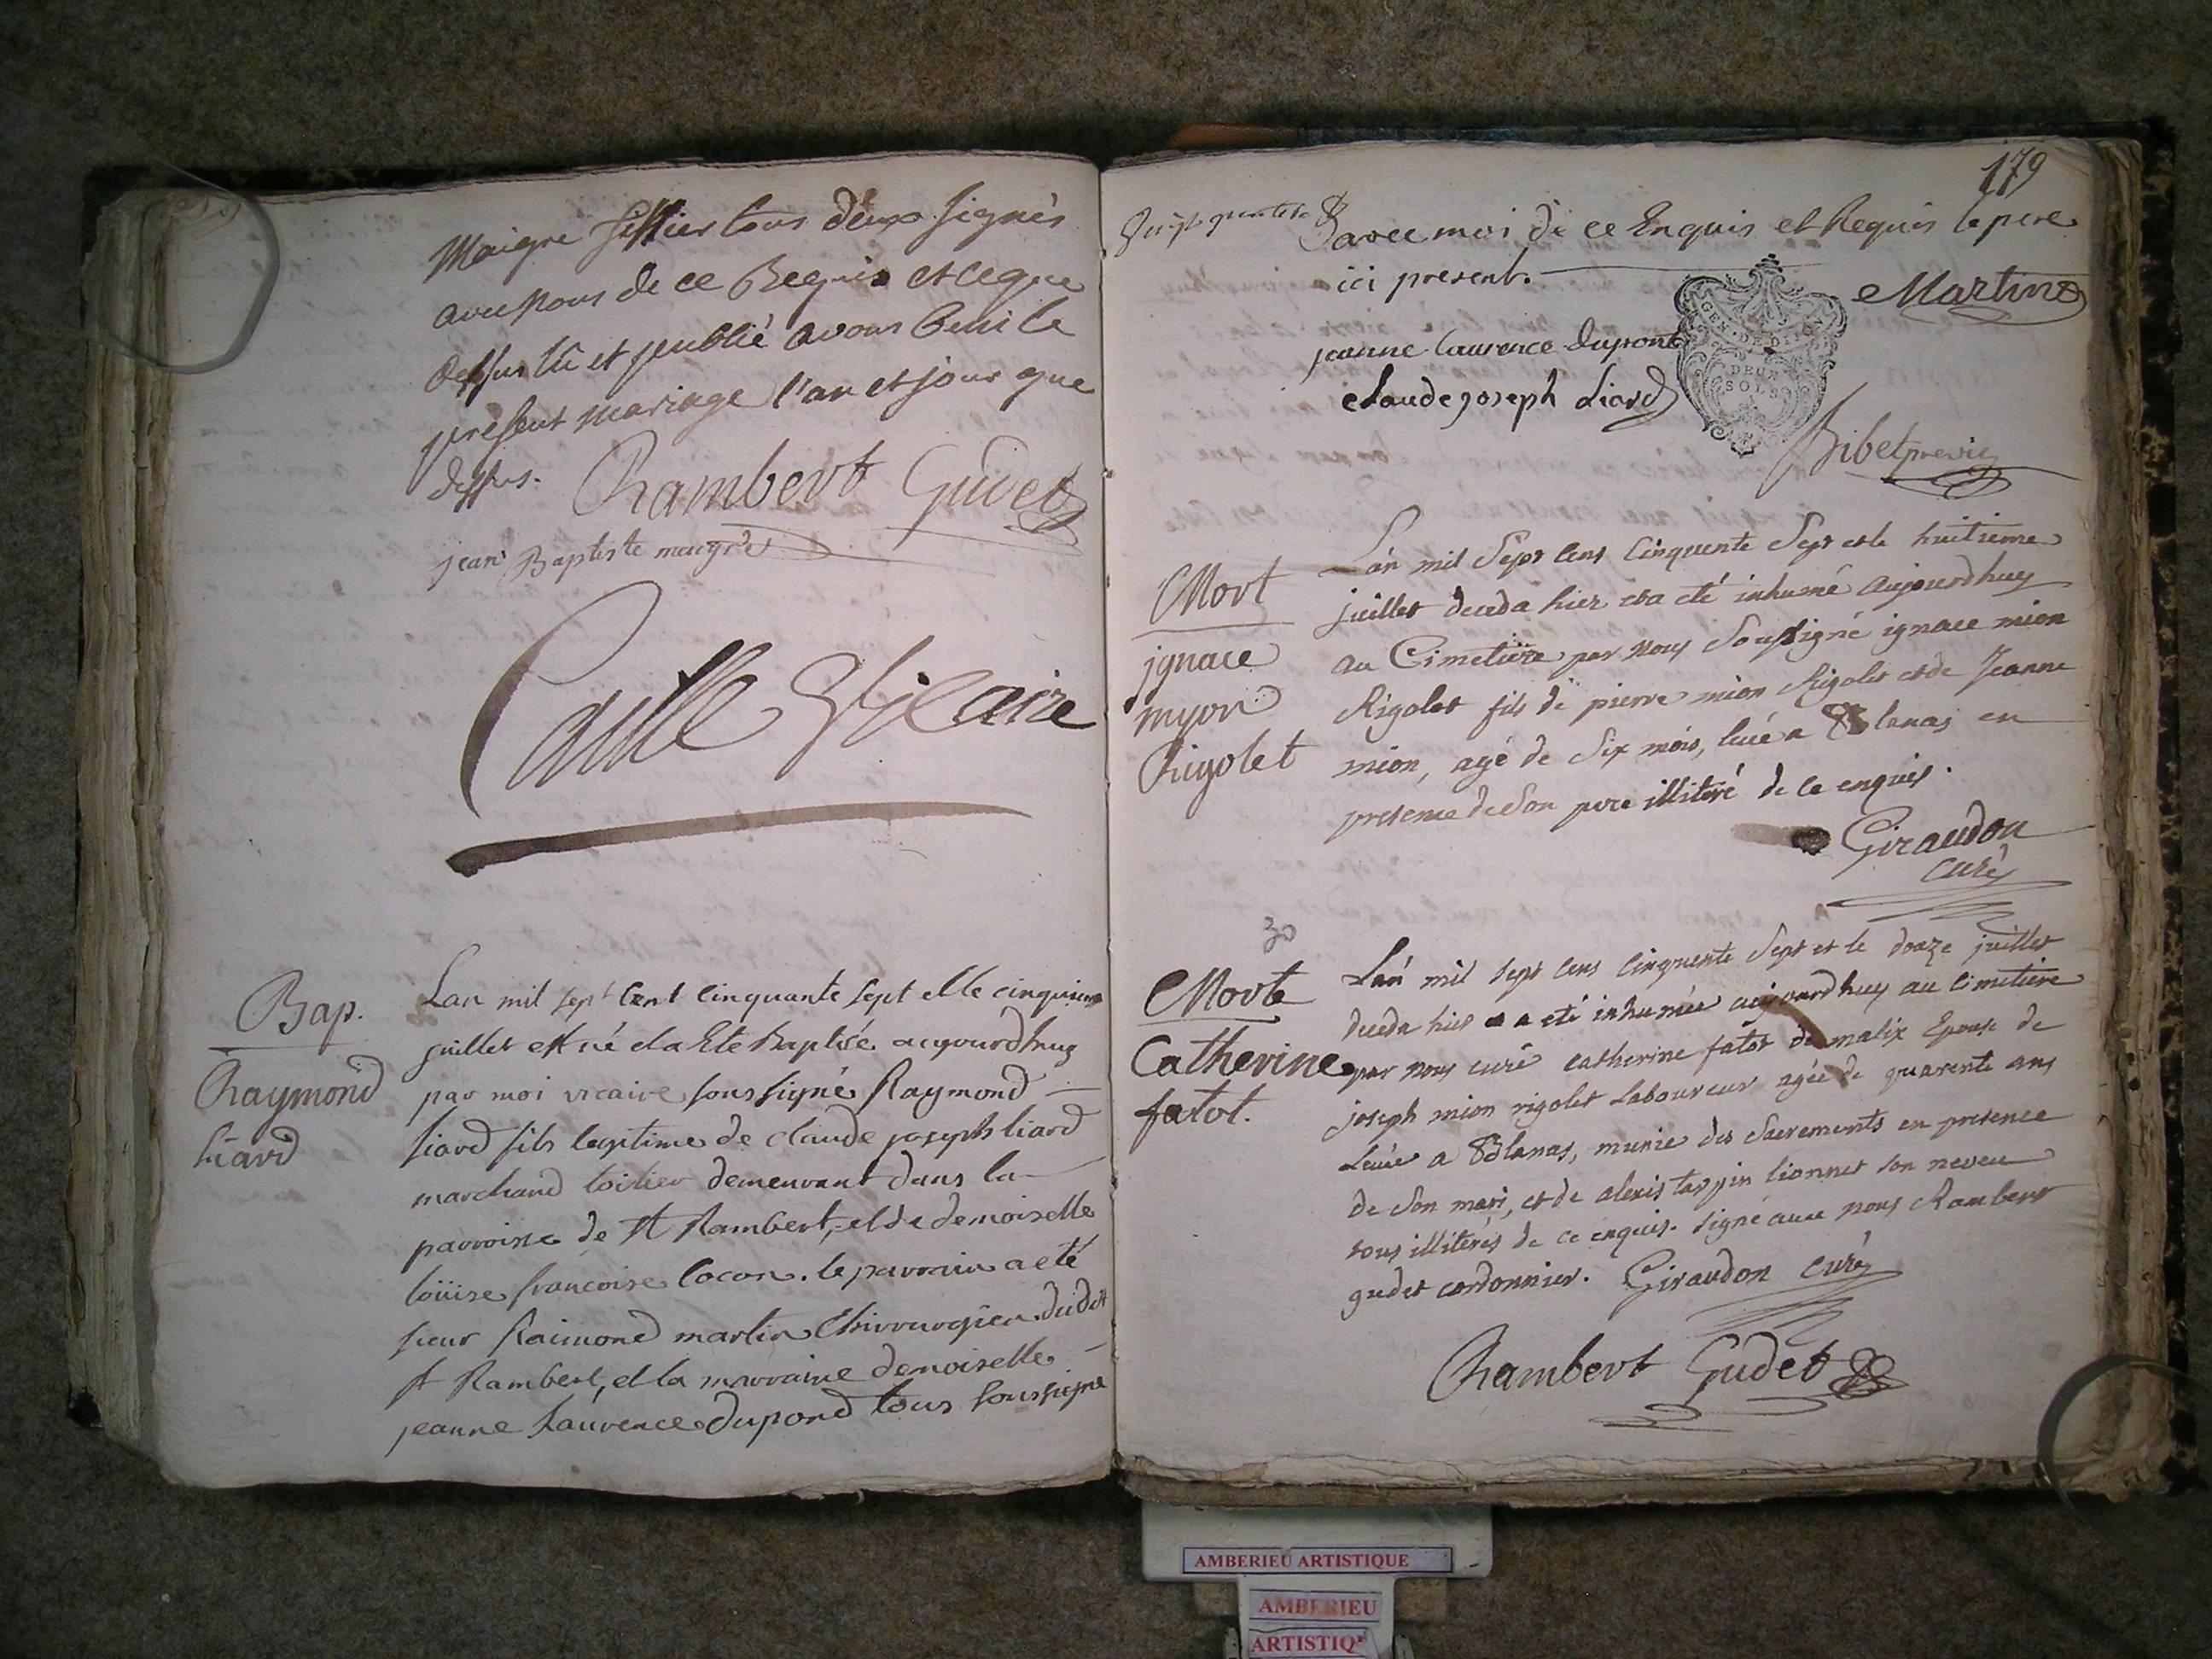 Maigre sellier tous deux signés
avec nous de ce Requis et ce que
dessus lû et publié avons beni le
present mariage l'an et jour que
dessus. Rambert Gudet
jean Baptiste maigre
Caille Vicaire
Bap.
Raymond
Liard
Lan mil sept cent cinquante sept et le cinquieme
juillet est né et a Eté Baptisé aujourdhuy
par moi vicaire soussigné Raymond
Liard fils legitime de claude joseph liard
marchand toilier demeurant dans la
parroisse de St Rambert, et de demoiselle
loüise francoise Cocon. le parrain a eté
sieur Raimond martin Chirourgien dudit
st Rambert, et la marraine demoiselle
jeanne Laurence dupond tous soussigné
179
avec moi de ce Enquis et Requis le pere
ici present.
Martin
GEN. DE DIJON
DEUX
SOLS
jeanne laurence dupont
claude joseph Liard
Ribet
Mort
jgnace
myon
Rigolet
Lan mil Sept Cens Cinquente Sept et le huitieme
juillet deceda hier et a eté inhumé aujourdhuy
au Cimetiere par nous Soussigné ignace mion
Rigolet fils de pierre mion Rigolet et de Jeanne
mion, agé de Six mois, levé a Blanas en
presence de Son pere illiteré de ce enquis.
Giraudon
curé
30
Morte
Catherine
fatot.
Lan mil sept cens cinquente Sept et le douze juillet
deceda hier a eté inhumée aujourdhuy au cimetiere
par nous curé catherine fatot de malix Epouse de
joseph mion rigolet Laboureur agée de quarente ans
Levée a Blanas, munie des Sacrements en presence
de Son mari, et de alexis tarpin lionnet son neveu
tous illiterés de ce enquis. signé avec nous Rambert
gudet cordonnier. Giraudon curé
Rambert Gudet
AMBERIEU ARTISTIQUE
AMBERIEU
ARTISTIQ